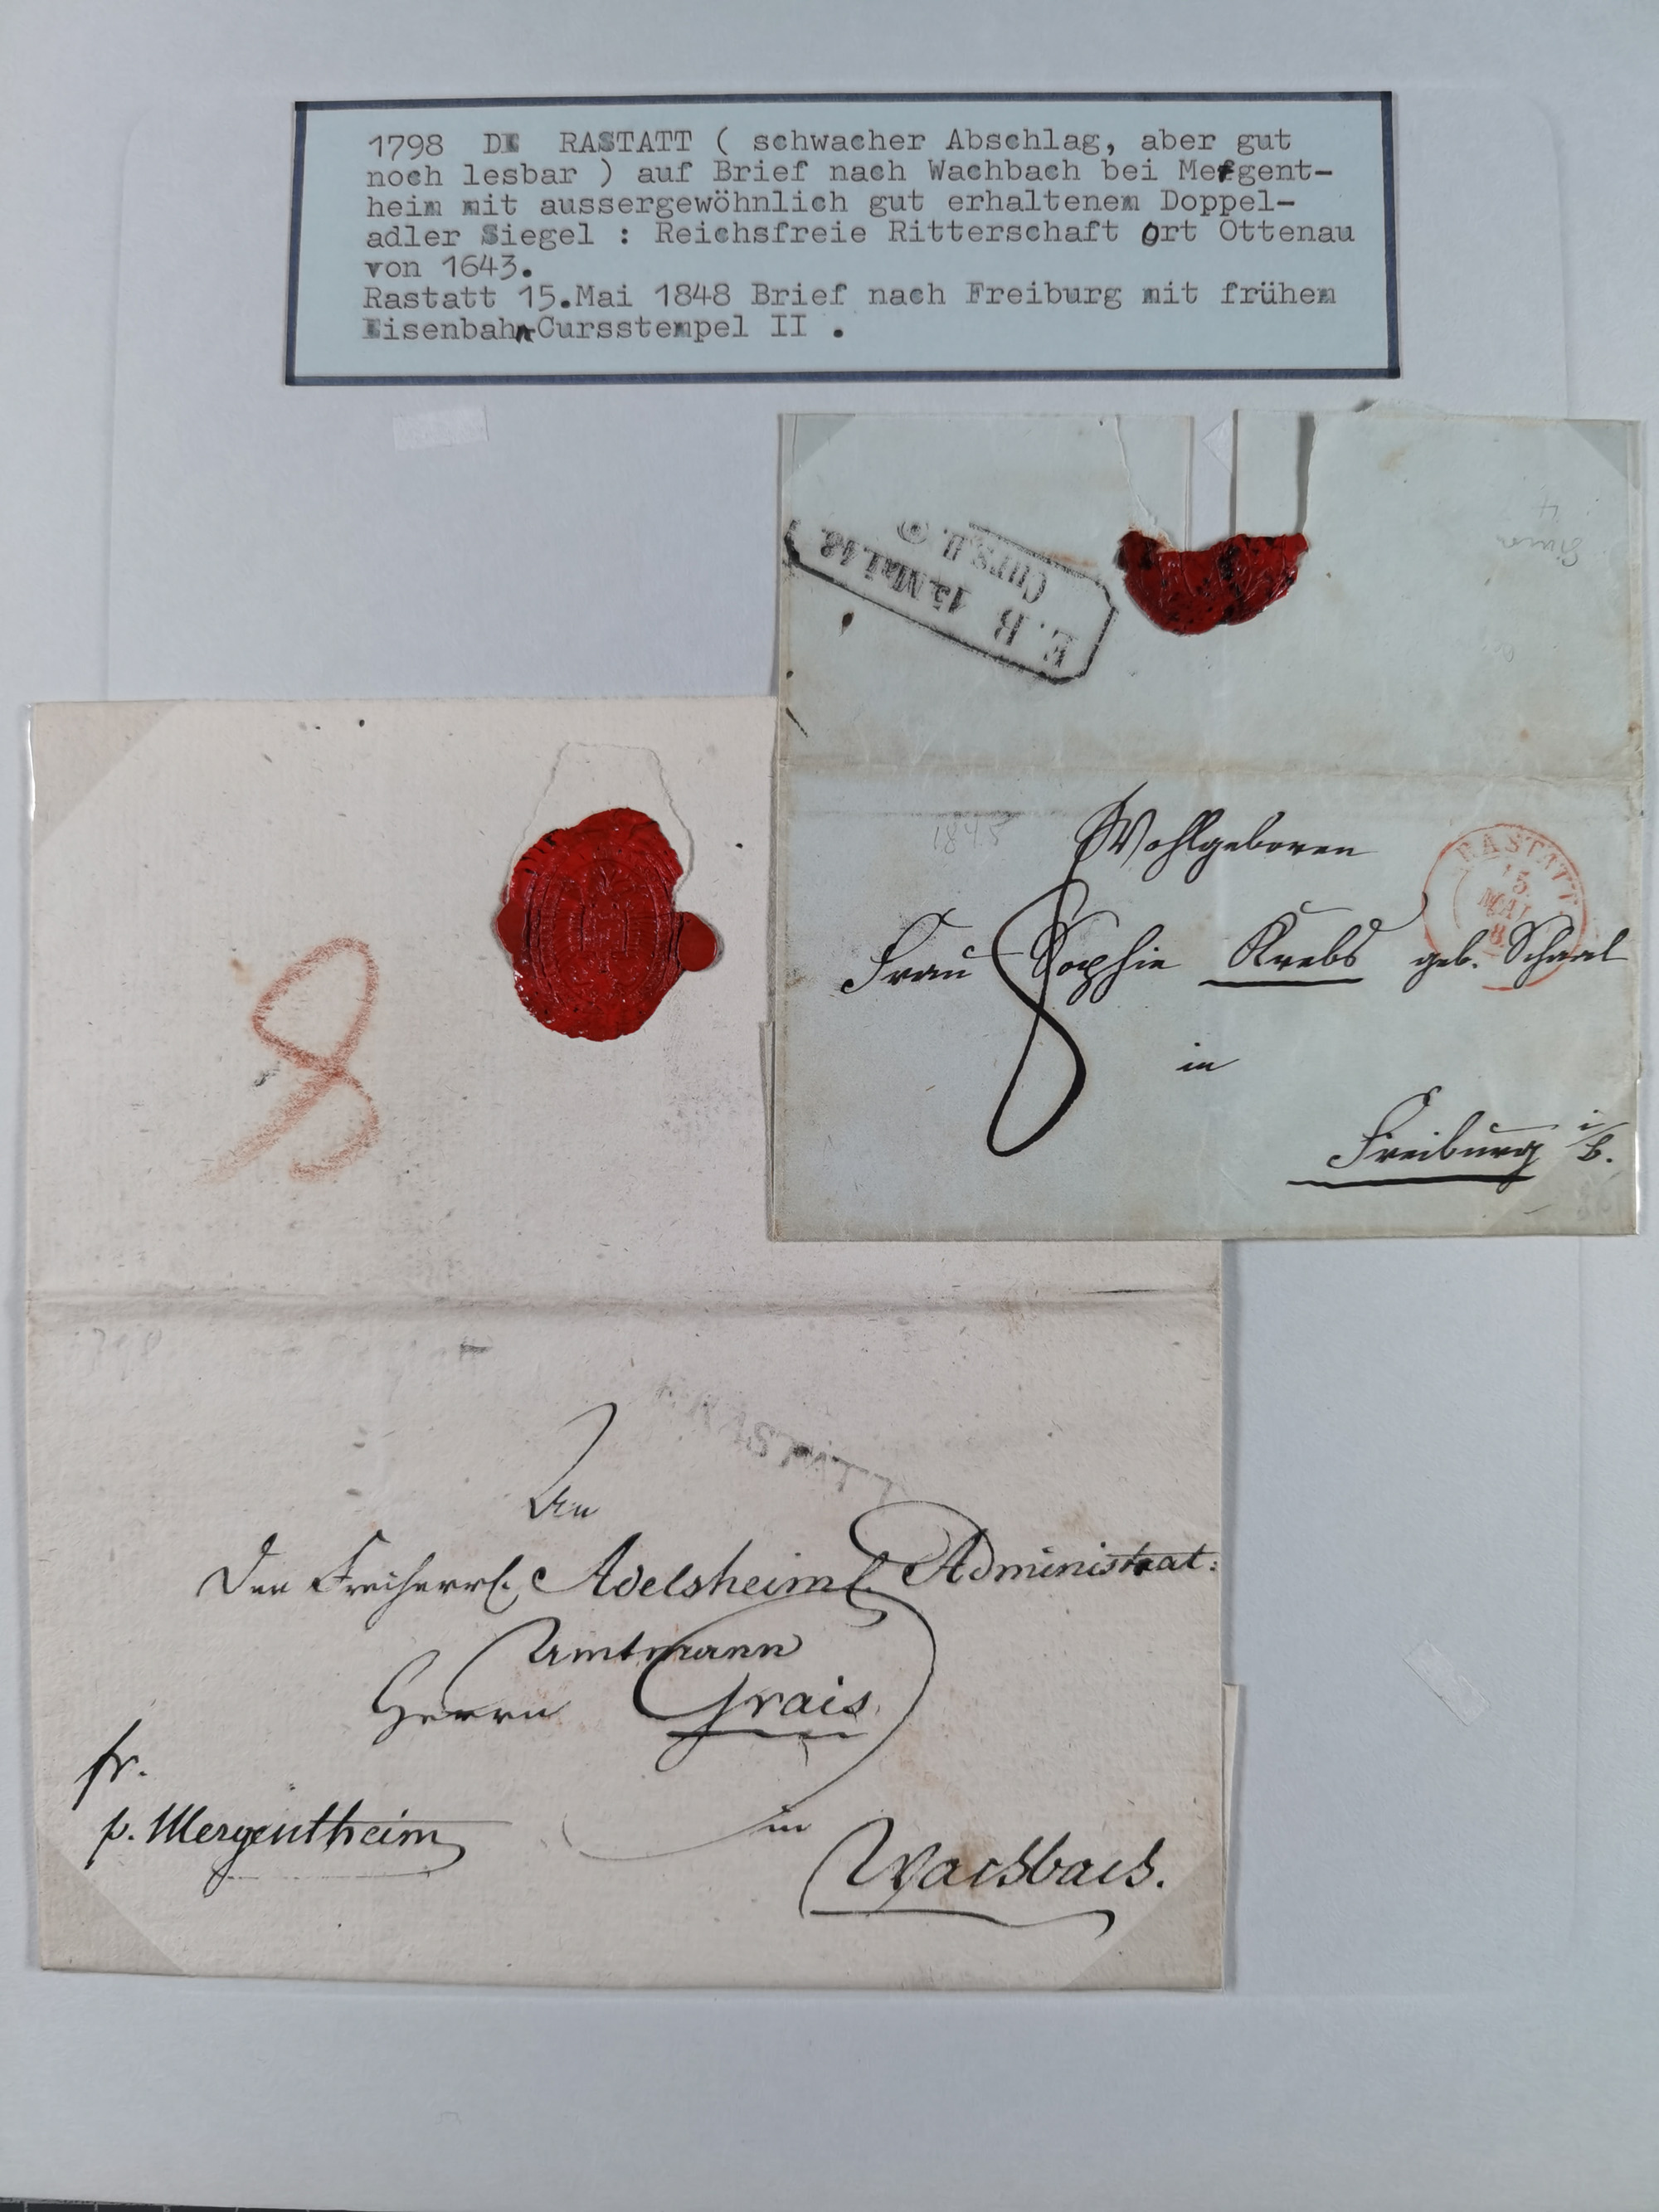 1798 DE RASTATT ( schwacher Abschlag, aber gut
noch lesbar ) auf Brief nach Wachbach bei Mergent-
heim mit aussergewöhnlich gut erhaltenem Doppel-
adler Siegel : Reichsfreie Ritterschaft Ort Ottenau
von 1643.
Rastatt 15.Mai 1848 Brief nach Freiburg mit frühem
Eisenbahn Cursstempel II .
E.B
15 Mai.48.
Curs.II.
1848
Wohlgeboren
RASTATT
15
MAI
8
Frau Sophie Krebs geb. Schaal
in
Freiburg i/B.
8
8
RASTATT
An
Den Freiherrl. Adelsheiml. Administrat:
Amtmann
Herrn Grais
fr.
p. Mergentheim
in
Wachbach.